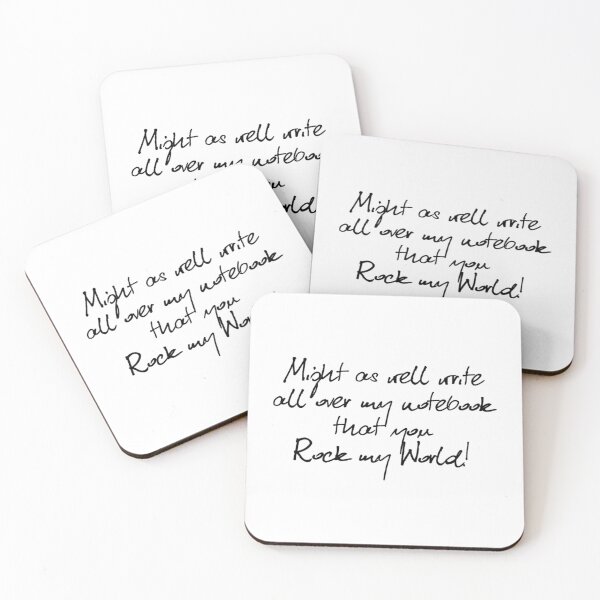 Might as well write
all over my notebook
you
World!
Might as well write
all over my notebook
that you
Rock my World!
Might as well write
all over my notebook
that you
Rock my World
Might as well write
all over my notebook
that you
Rock my World!